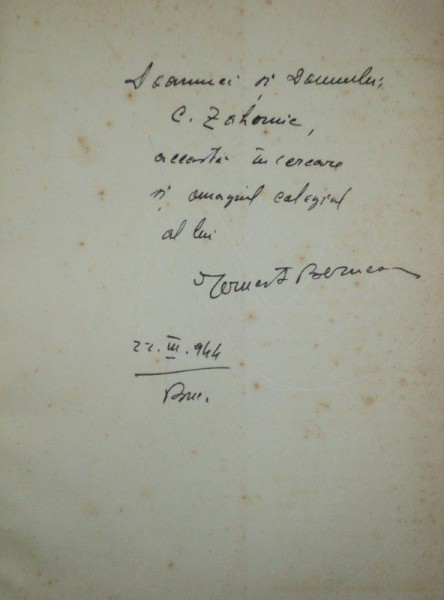 Doamnei și Domnului
C. Zahornic,
această încercare
și omagiul colegial
al lui
Ernest Bernea
22.III.944
Buc.